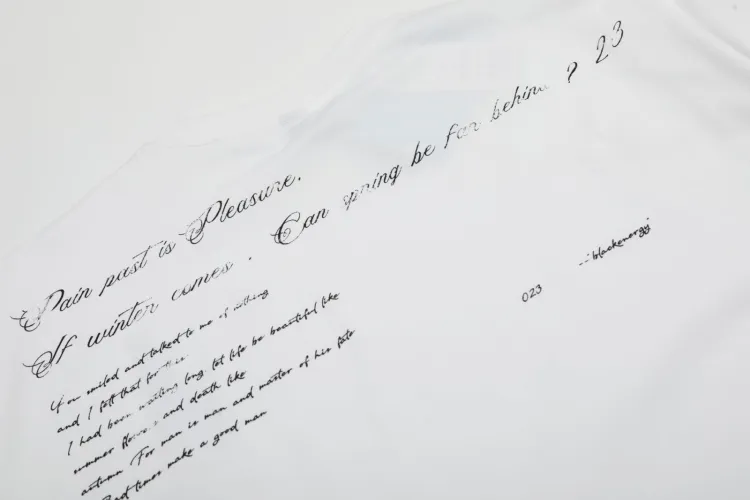 Pain past is Pleasure.
If winter comes . Can spring be far behind ? 23
You smiled and talked to me of nothing
and I felt that for this
I had been waiting long. let life be beautiful like
summer flowers and death like
autumn. For man is man and master of his fate
Bad times make a good man
023
--:blackenergy